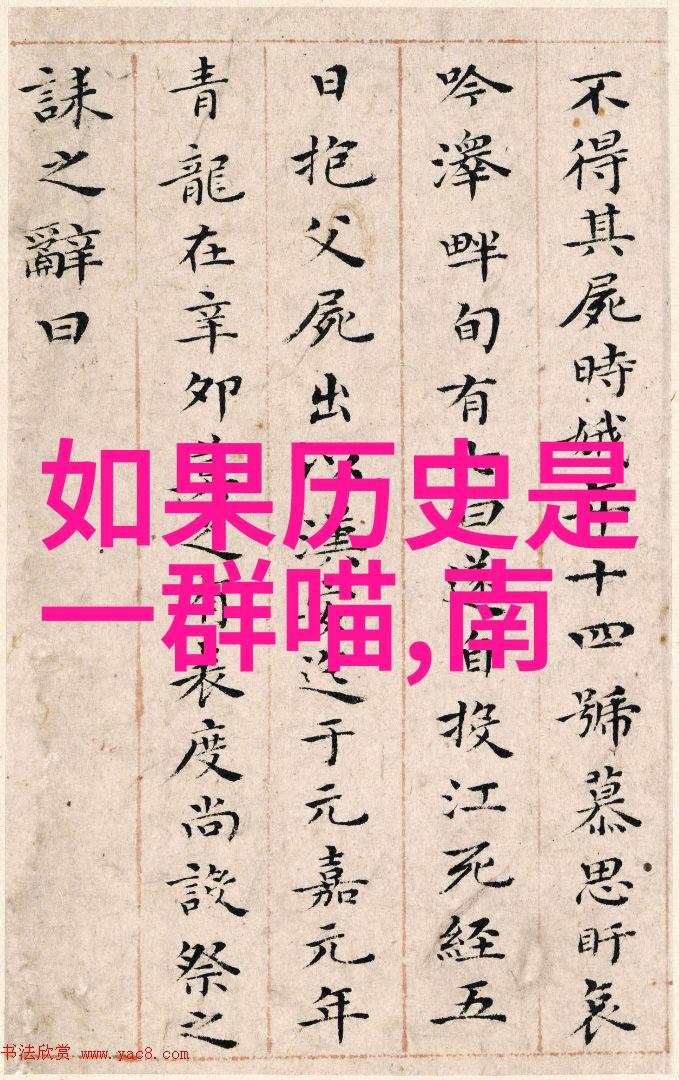 不得其屍時娥年十四號慕思盱哀
吟澤畔旬有日遂自投江死經五
日抱父屍出以漢迄于元嘉元年
青龍在辛卯莫之有表度尚設祭之
誄之辭曰
如果历史是
一群喵,南
书法欣赏 www.yac8.com